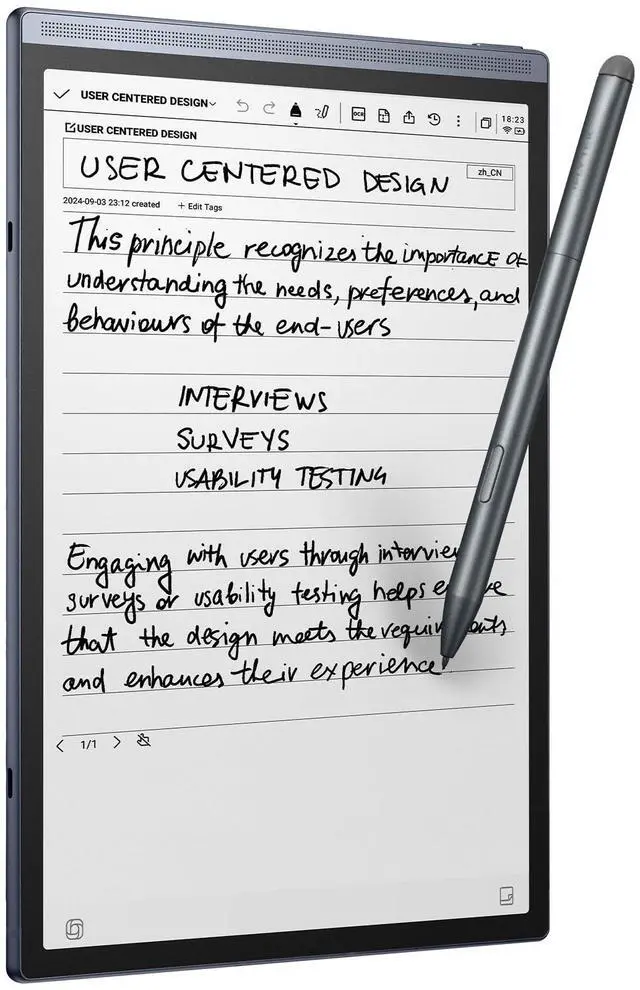 USER CENTERED DESIGN
OCR
18:23
USER CENTERED DESIGN
USER CENTERED DESIGN
zh_CN
2024-09-03 23:12 created + Edit Tags
This principle recognizes the importance of
understanding the needs, preferences, and
behaviours of the end-users
INTERVIEWS
SURVEYS
USABILITY TESTING
Engaging with users through
surveys or usability testing helps
that the design meets the
and enhances their experience
1/1